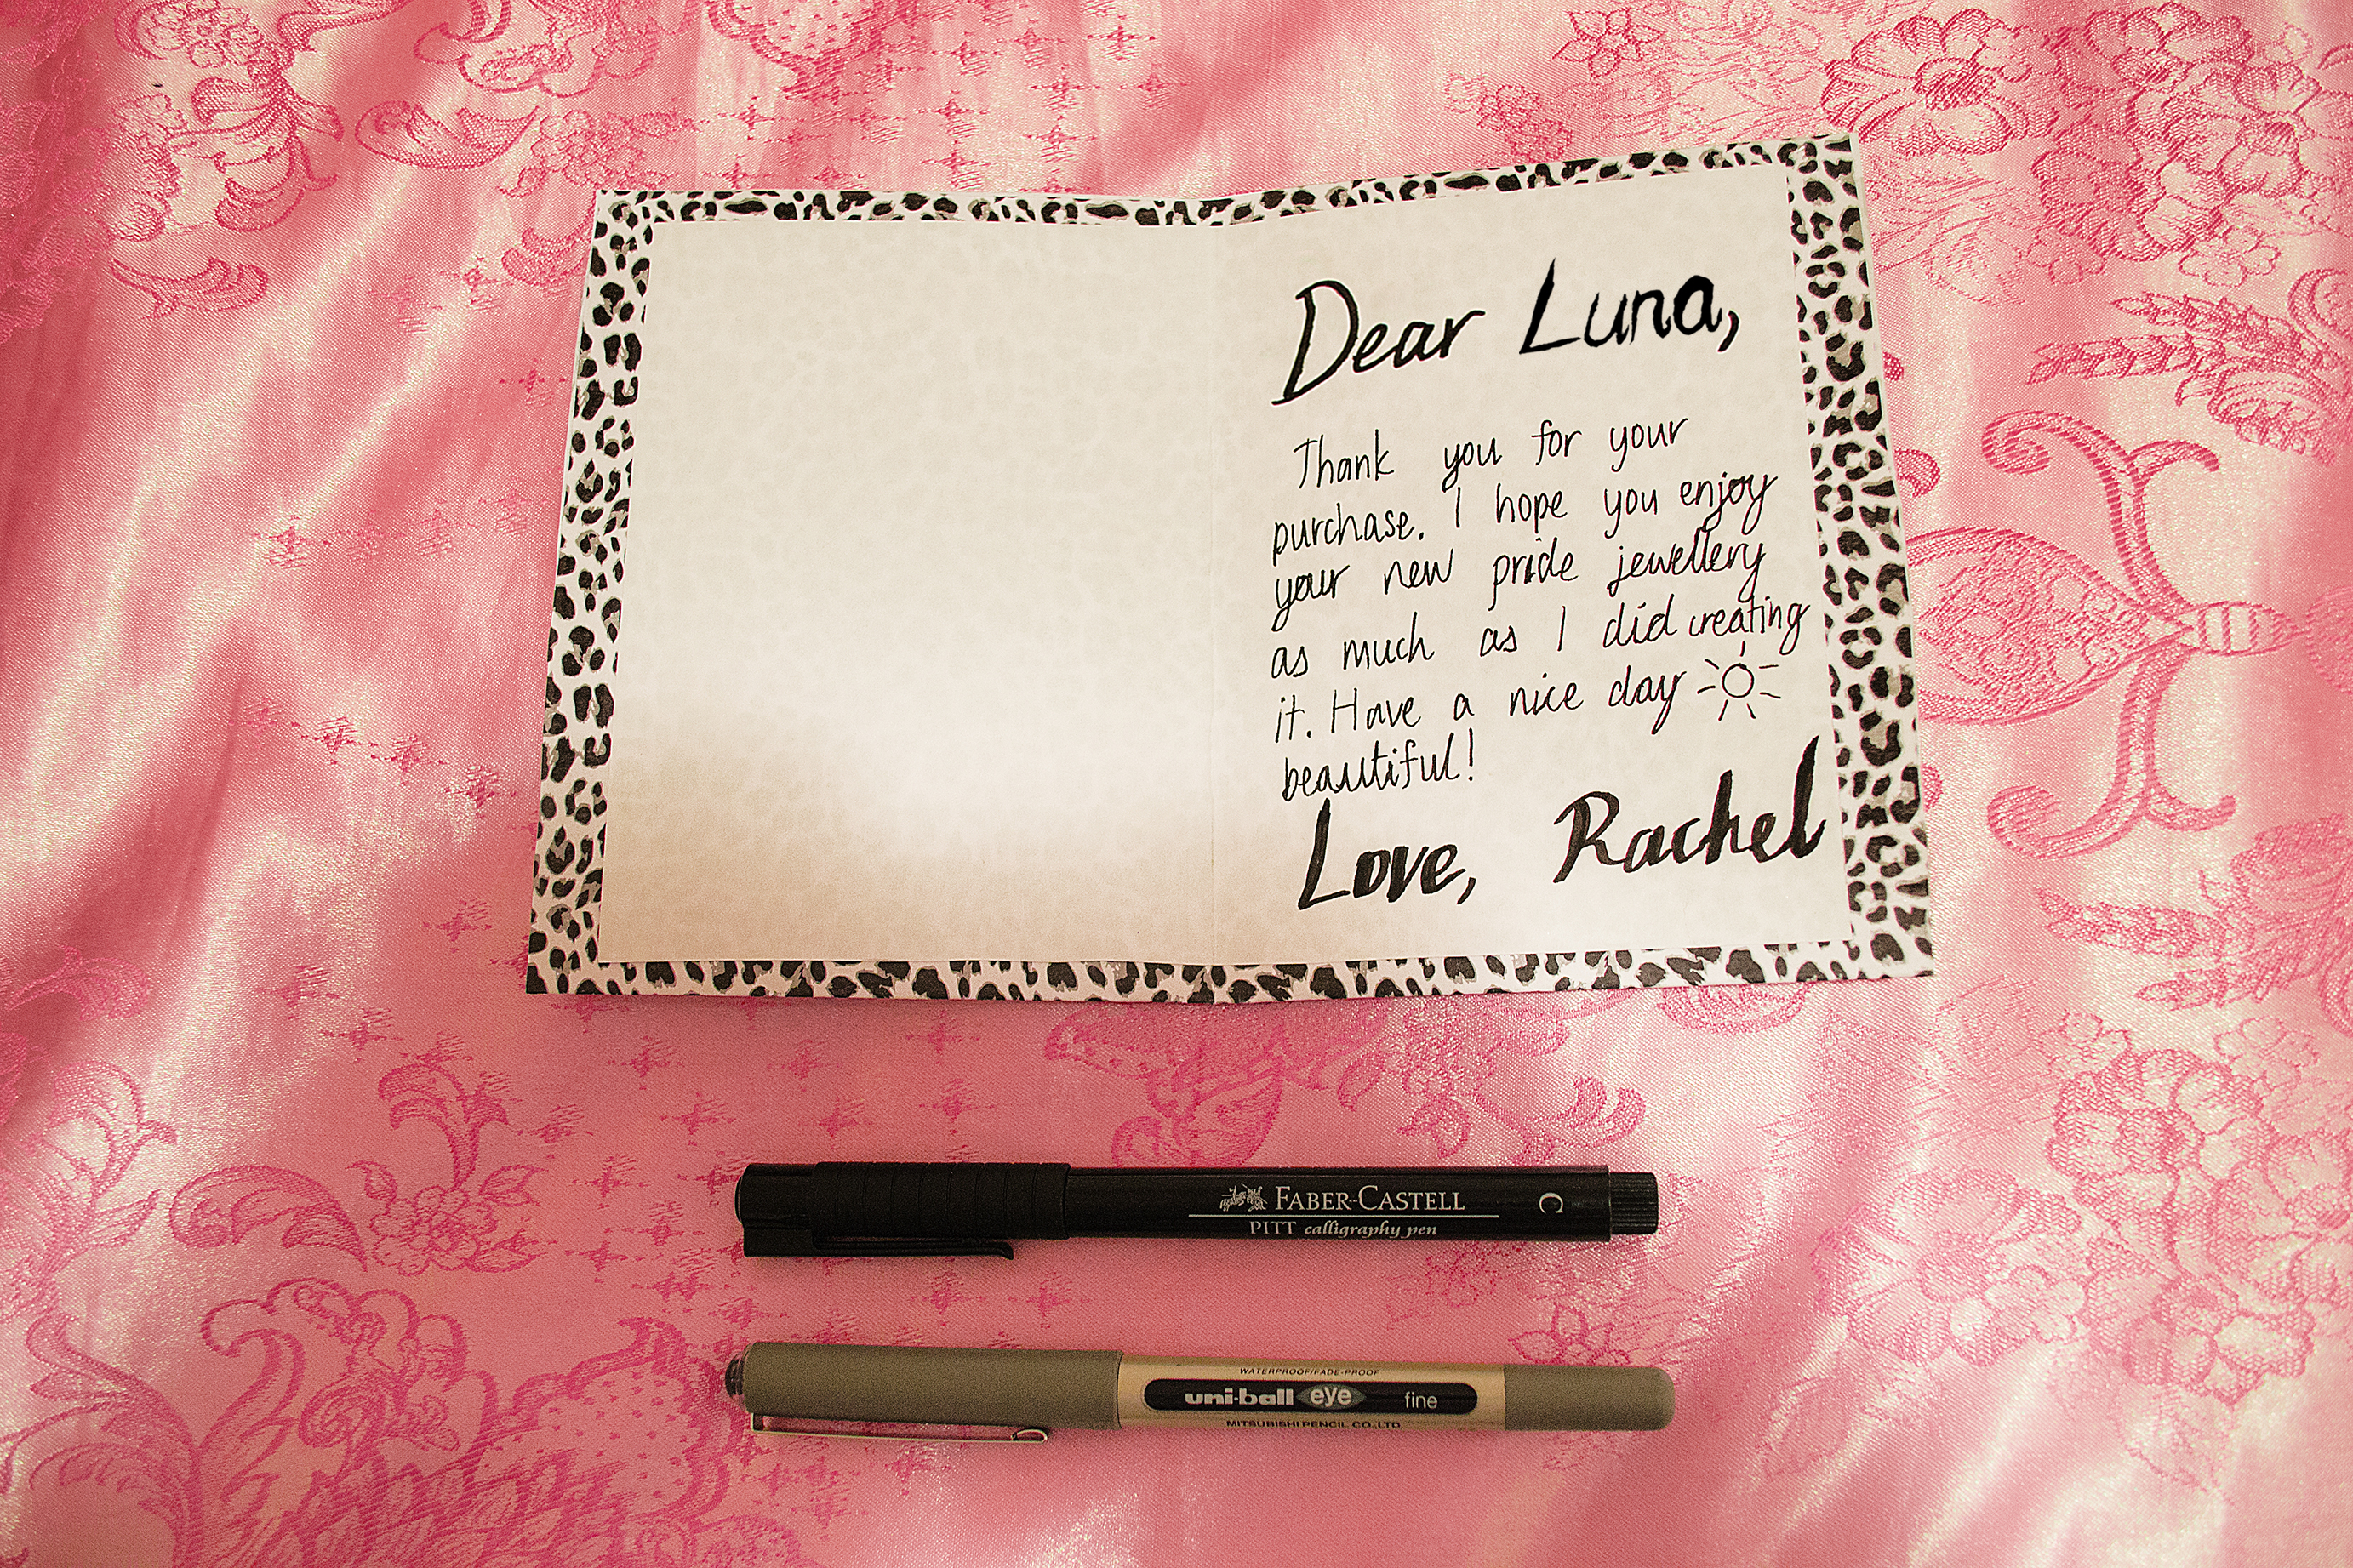 Dear Luna,
Thank you for your
purchase. I hope you enjoy
your new pride jewellery
as much as I did creating
it. Have a nice day
beautiful!
Love, Rachel
FABER-CASTELL
PITT calligraphy pen
C
WATERPROOF/FADE-PROOF
uni-ball eye fine
MITSUBISHI PENCIL CO.,LTD.